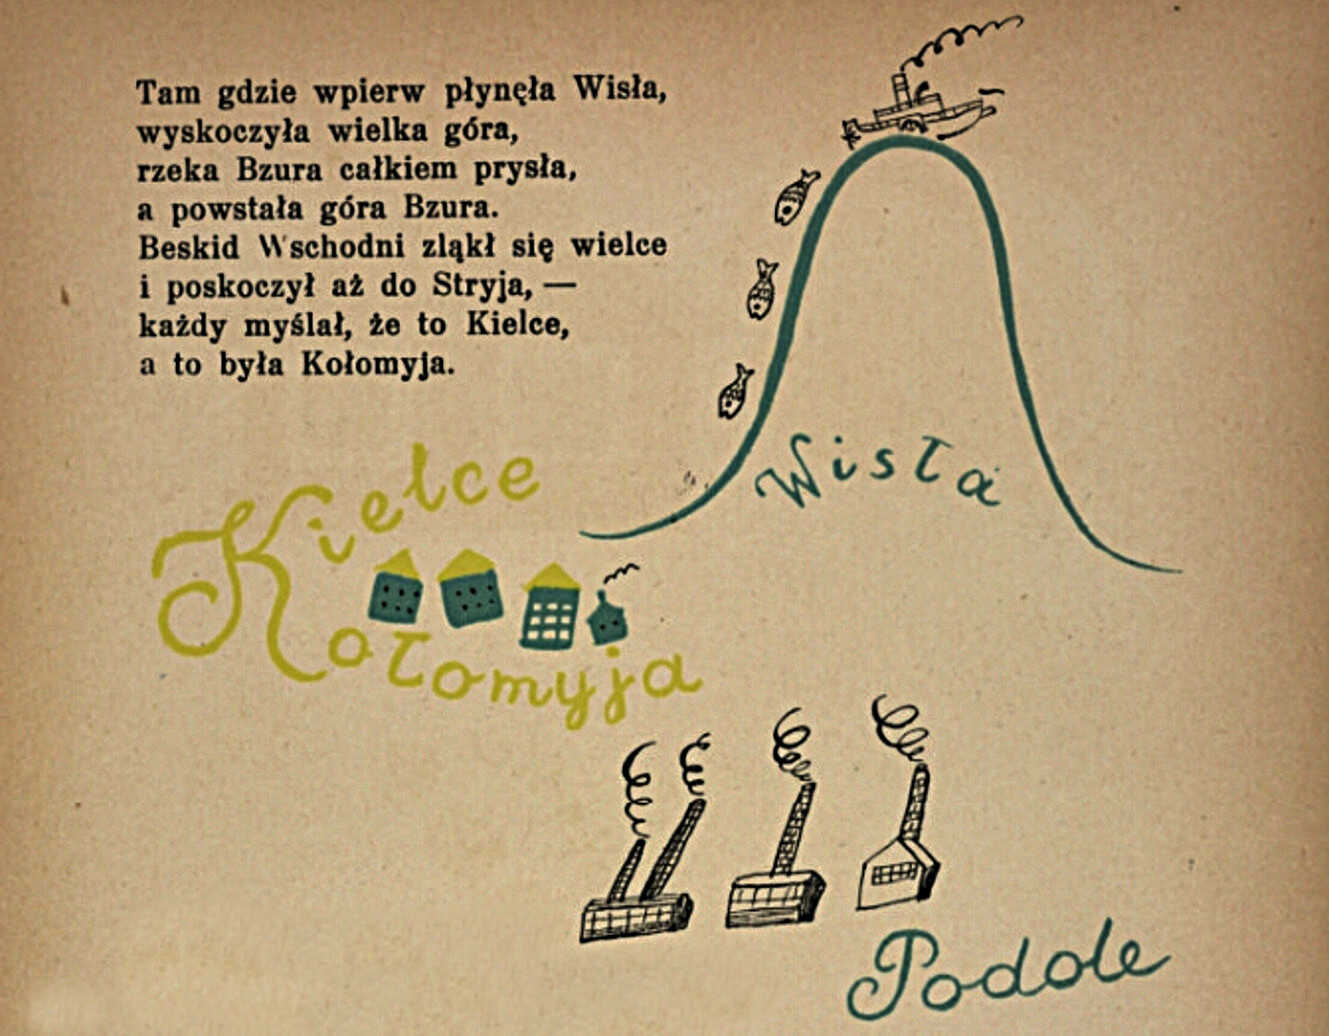 Tam gdzie wpierw płynęła Wisła,
wyskoczyła wielka góra,
rzeka Bzura całkiem prysła,
a powstała góra Bzura.
Beskid Wschodni zląkł się wielce
i poskoczył aż do Stryja, —
każdy myślał, że to Kielce,
a to była Kołomyja.
Wisła
Kielce
Kołomyja
Podole